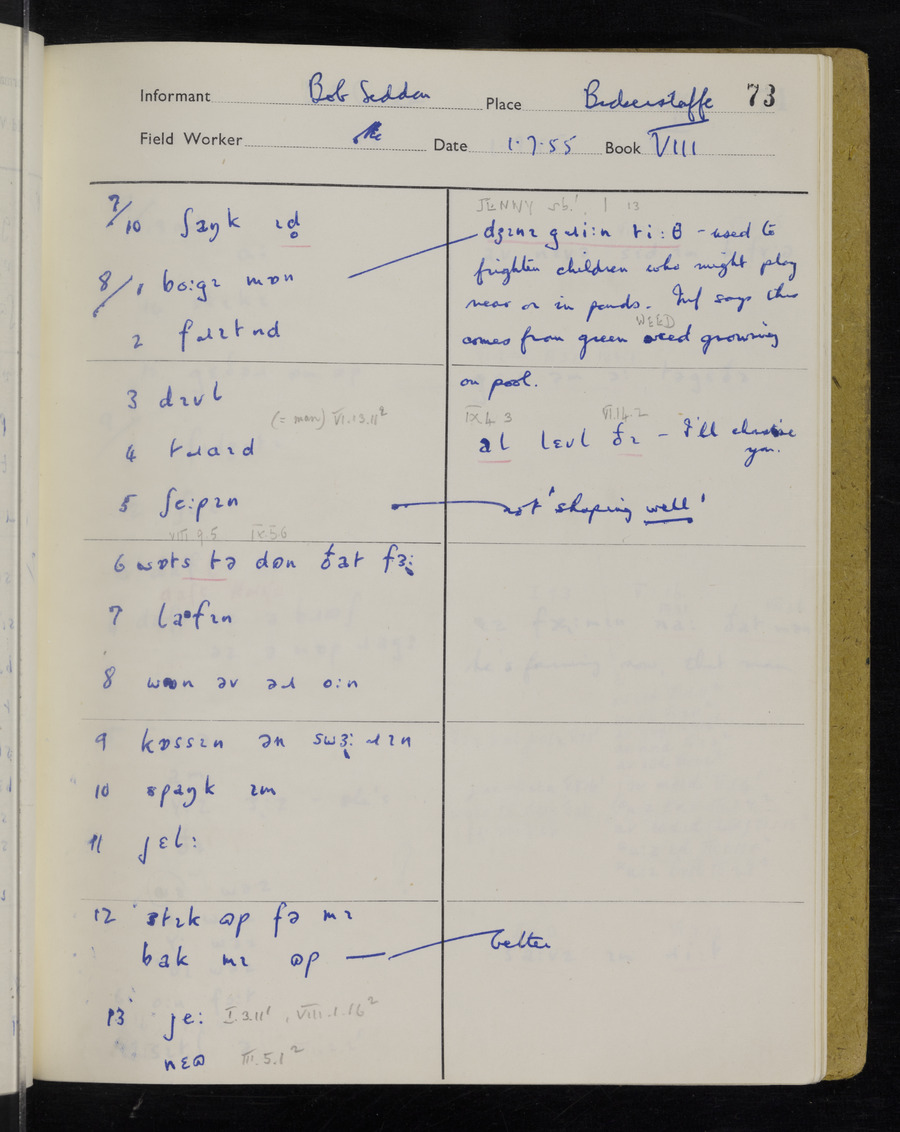 Informant Bob Seddon Place Bickerstaffe 73
Field Worker Date 1.7.55 Book VIII
7/10 ʃaŋk ɪd̥
8/1 bo:gɪ mɒn
2 fɹɪtnd
3 dɪvl
(= man) VI.13.11²
4 tɹaɪd
5 ʃe:pɪn
VIII 9.5 IX.5.6
6 wɒts tə dɒn ðat fɜ:
7 lafɪn
8 əv əɹ o:n
9 kɒssɪn ən swɜ:ɹɪn
10 spaŋk ɪm
11 jɛl:
12 stɪk ɷp fə mɪ
bak mɪ ɷp
13 je: I.3.11¹, VIII.1.16²
nɛɷ III.5.1²
JENNY sb.¹ 1 13
dʒɪnɪ gɹi:n ti:θ - used to
frighten children who might play
near or in ponds. Inf says this
WEED
comes from green weed growing
on pool.
IX.4.3 VI.14.2
al lɛvl ðɪ - I'll chastise
you.
not 'shaping well'
better